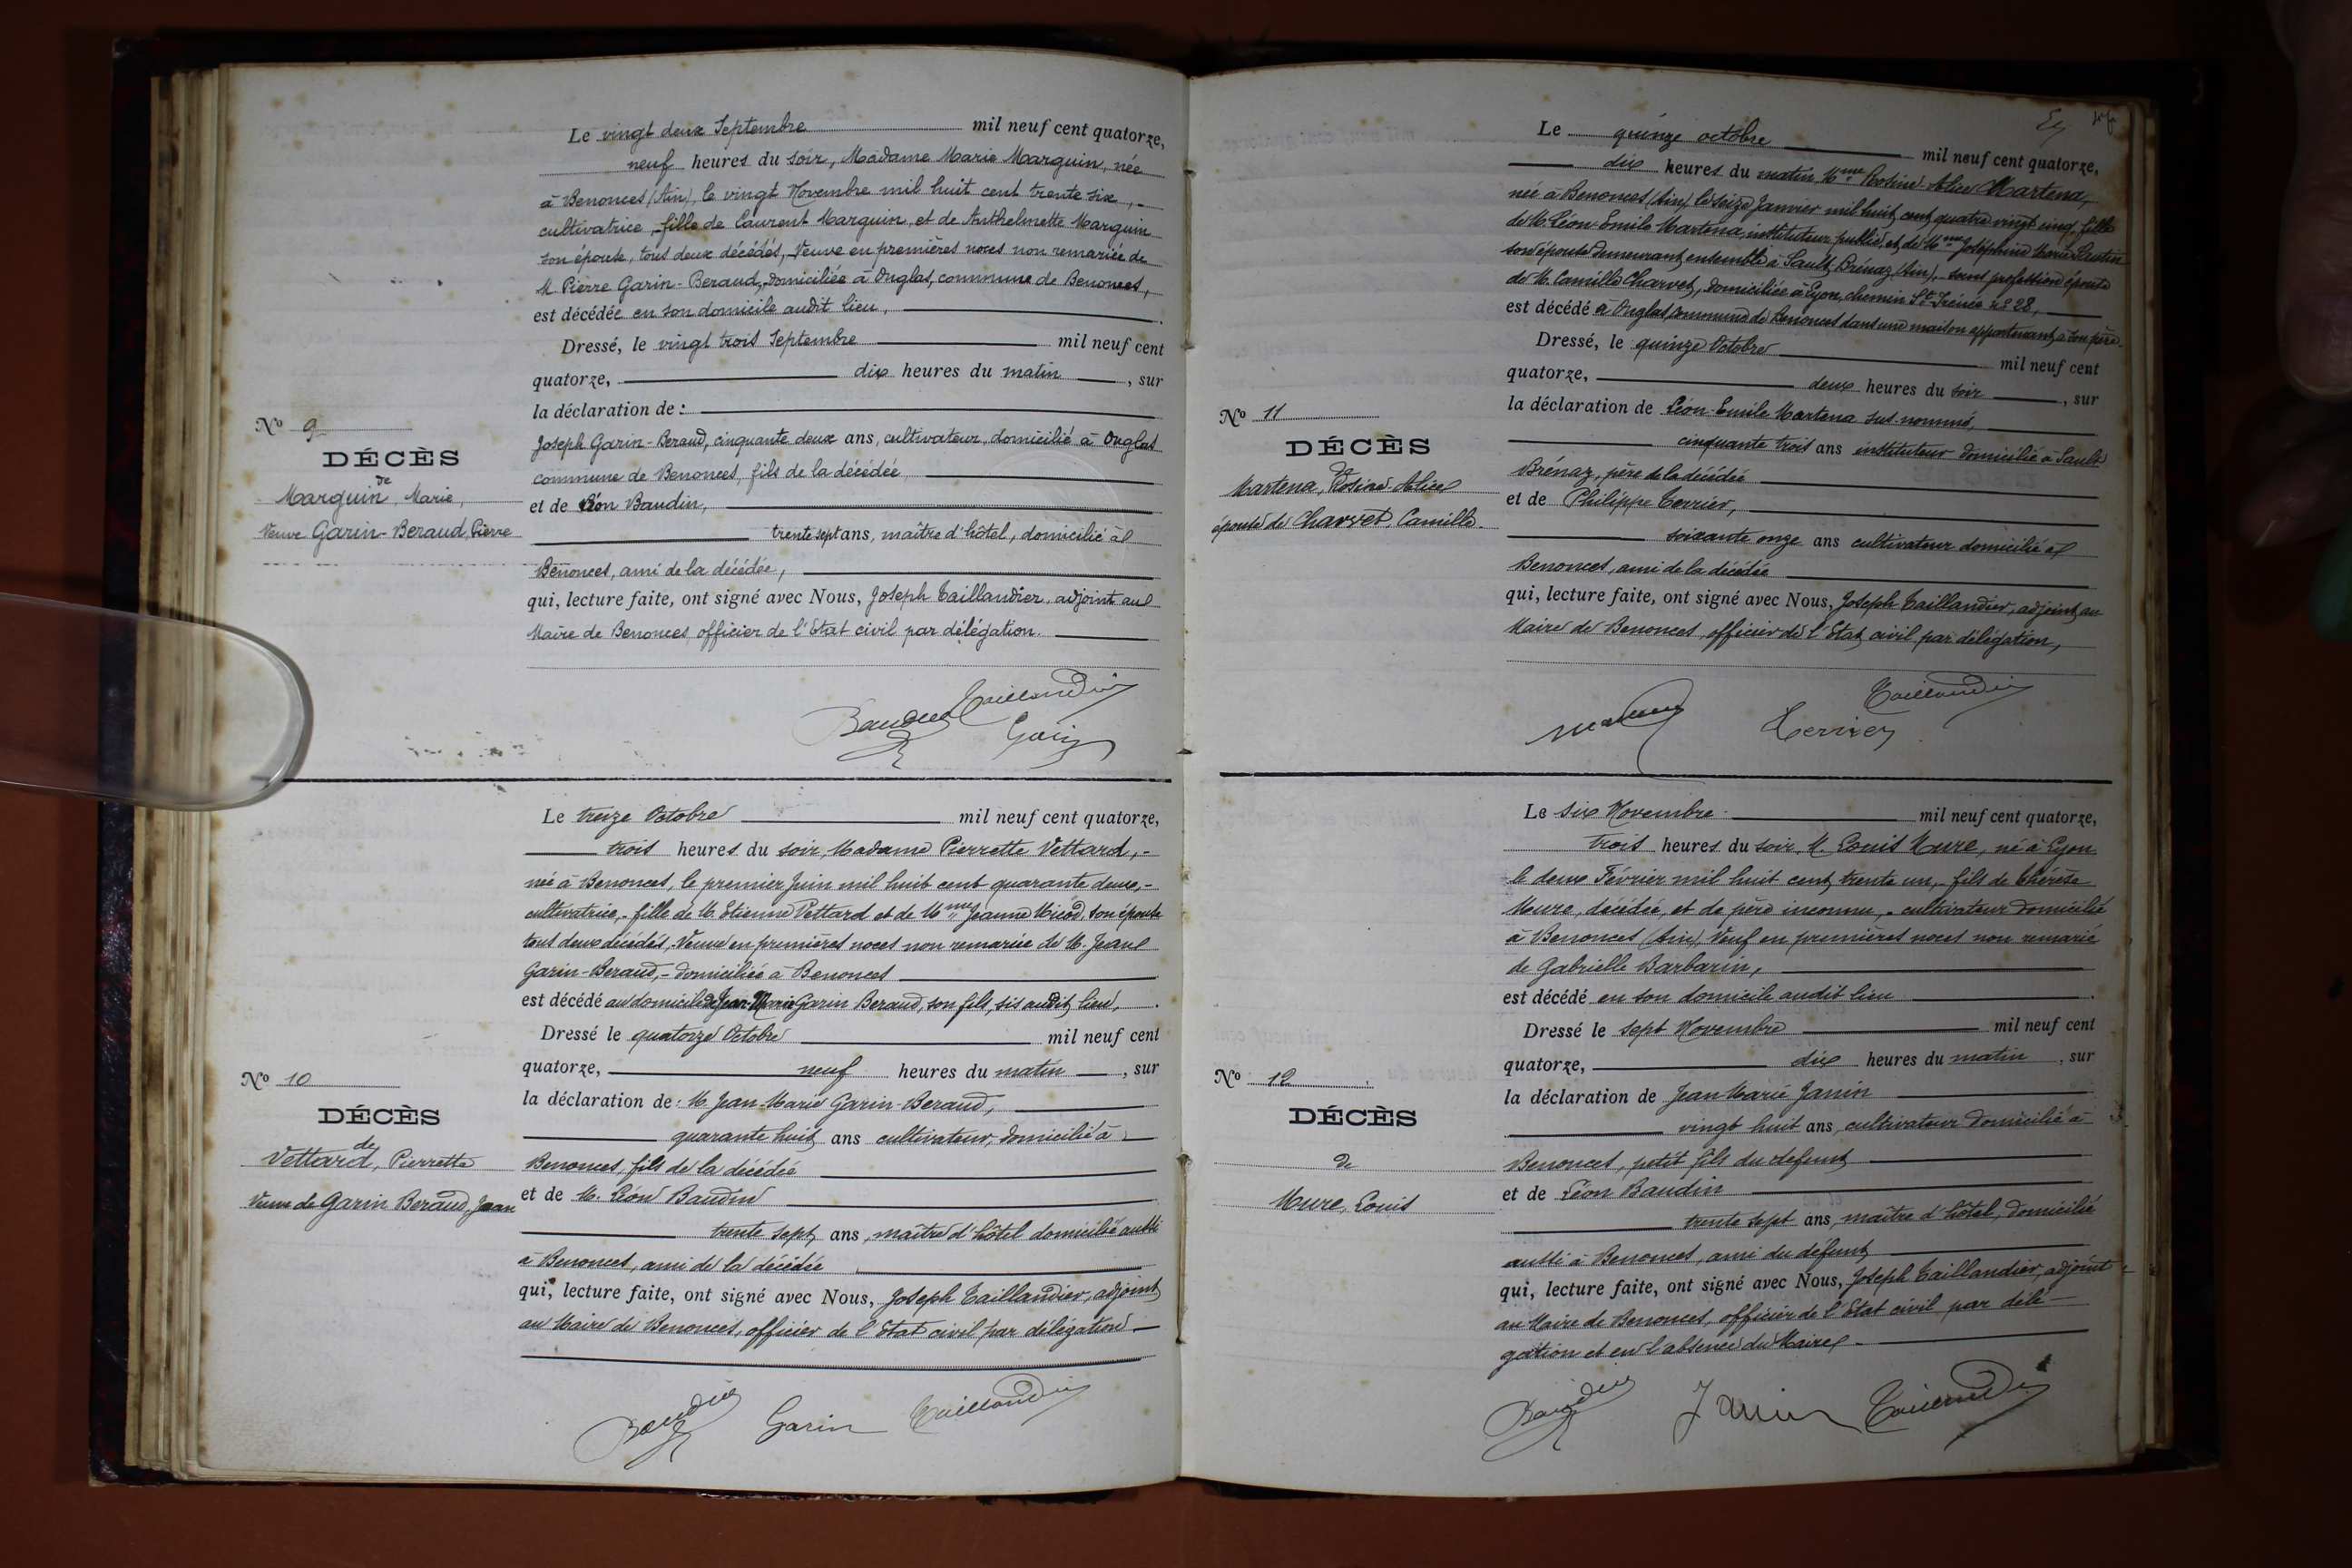 Le vingt deux Septembre mil neuf cent quatorze,
neuf heures du soir, Madame Marie Marguin, née
à Benonces (Ain), le vingt Novembre mil huit cent trente six,
cultivatrice, fille de Laurent Marguin et de Anthelmette Marguin
son épouse, tous deux décédés, Veuve en premières noces non remariée de
M. Pierre Garin-Beraud, domiciliée à Onglas, commune de Benonces,
est décédée en son domicile audit lieu,
Dressé, le vingt trois Septembre mil neuf cent
quatorze, dix heures du matin, sur
la déclaration de :
Joseph Garin-Beraud, cinquante deux ans, cultivateur, domicilié à Onglas
commune de Benonces, fils de la décédée
et de Léon Baudin,
trente sept ans, maître d'hôtel, domicilié à
Benonces, ami de la décédée,
qui, lecture faite, ont signé avec Nous, Joseph Taillandier, adjoint au
Maire de Benonces, officier de l'Etat civil par délégation.
Nº 9
DÉCÈS
de
Marguin, Marie,
Veuve Garin-Beraud, Pierre
Baudin Taillandier
Garin
Le treize Octobre mil neuf cent quatorze,
trois heures du soir, Madame Pierrette Vettard,-
née à Benonces, le premier Juin mil huit cent quarante deux,-
cultivatrice,- fille de M. Etienne Vettard et de Mme Jeanne Micod, son épouse
tous deux décédés,- Veuve en premières noces non remariée de M. Jean
Garin-Beraud,- domiciliée à Benonces
est décédé au domicile de Jean-Marie Garin Beraud, son fils, sis audit lieu,
Dressé le quatorze Octobre mil neuf cent
quatorze, neuf heures du matin, sur
la déclaration de : M. Jean-Marie Garin-Beraud,
quarante huit ans cultivateur, domicilié à
Benonces, fils de la décédée
et de M. Léon Baudin
trente sept ans, maître d'hôtel domicilié aussi
à Benonces, ami de la décédée
qui, lecture faite, ont signé avec Nous, Joseph Taillandier, adjoint
au Maire de Benonces, officier de l'Etat civil par délégation
Nº 10
DÉCÈS
de
Vettard, Pierrette
Veuve de Garin Beraud, Jean
Baudin Garin Taillandier
Le quinze octobre mil neuf cent quatorze,
dix heures du matin, Mme Rosine-Alice Martena,
née à Benonces (Ain) le seize Janvier mil huit cent quatre vingt cinq, fille
de M. Léon-Emile Martena, instituteur public, et de Mme Joséphine Marie
son épouse demeurant ensemble à Sault-Brénaz (Ain),- sans profession épouse
de M. Camille Charvet, domiciliée à Lyon, chemin St-Irénée nº 28,
est décédé à Onglas, commune de Benonces dans une maison appartenant à son père.
Dressé, le quinze Octobre mil neuf cent
quatorze, deux heures du soir, sur
la déclaration de Léon-Emile Martena sus-nommé,
cinquante trois ans instituteur domicilié à Sault
Brénaz, père de la décédée
et de Philippe Terrier,
soixante onze ans cultivateur domicilié à
Benonces, ami de la décédée
qui, lecture faite, ont signé avec Nous, Joseph Taillandier, adjoint au
Maire de Benonces, officier de l'Etat civil par délégation,
Nº 11
DÉCÈS
de
Martena, Rosine-Alice
épouse de Charvet, Camille.
Taillandier
Terrier
Le six Novembre mil neuf cent quatorze,
trois heures du soir, M. Louis Mure, né à Lyon
le deux Février mil huit cent trente un,- fils de Thérèse
Mure, décédée, et de père inconnu,- cultivateur domicilié
à Benonces (Ain), Veuf en premières noces non remarié
de Gabrielle Barbarin,
est décédé en son domicile audit lieu
Dressé le sept Novembre mil neuf cent
quatorze, dix heures du matin, sur
la déclaration de Jean Marie Janin
vingt huit ans, cultivateur domicilié à
Benonces, petit fils du défunt
et de Léon Baudin
trente sept ans, maître d'hôtel, domicilié
aussi à Benonces, ami du défunt
qui, lecture faite, ont signé avec Nous, Joseph Taillandier, adjoint
au Maire de Benonces, officier de l'Etat civil par délé-
gation et en l'absence du Maire.
Nº 12
DÉCÈS
de
Mure, Louis
Baudin Janin Taillandier